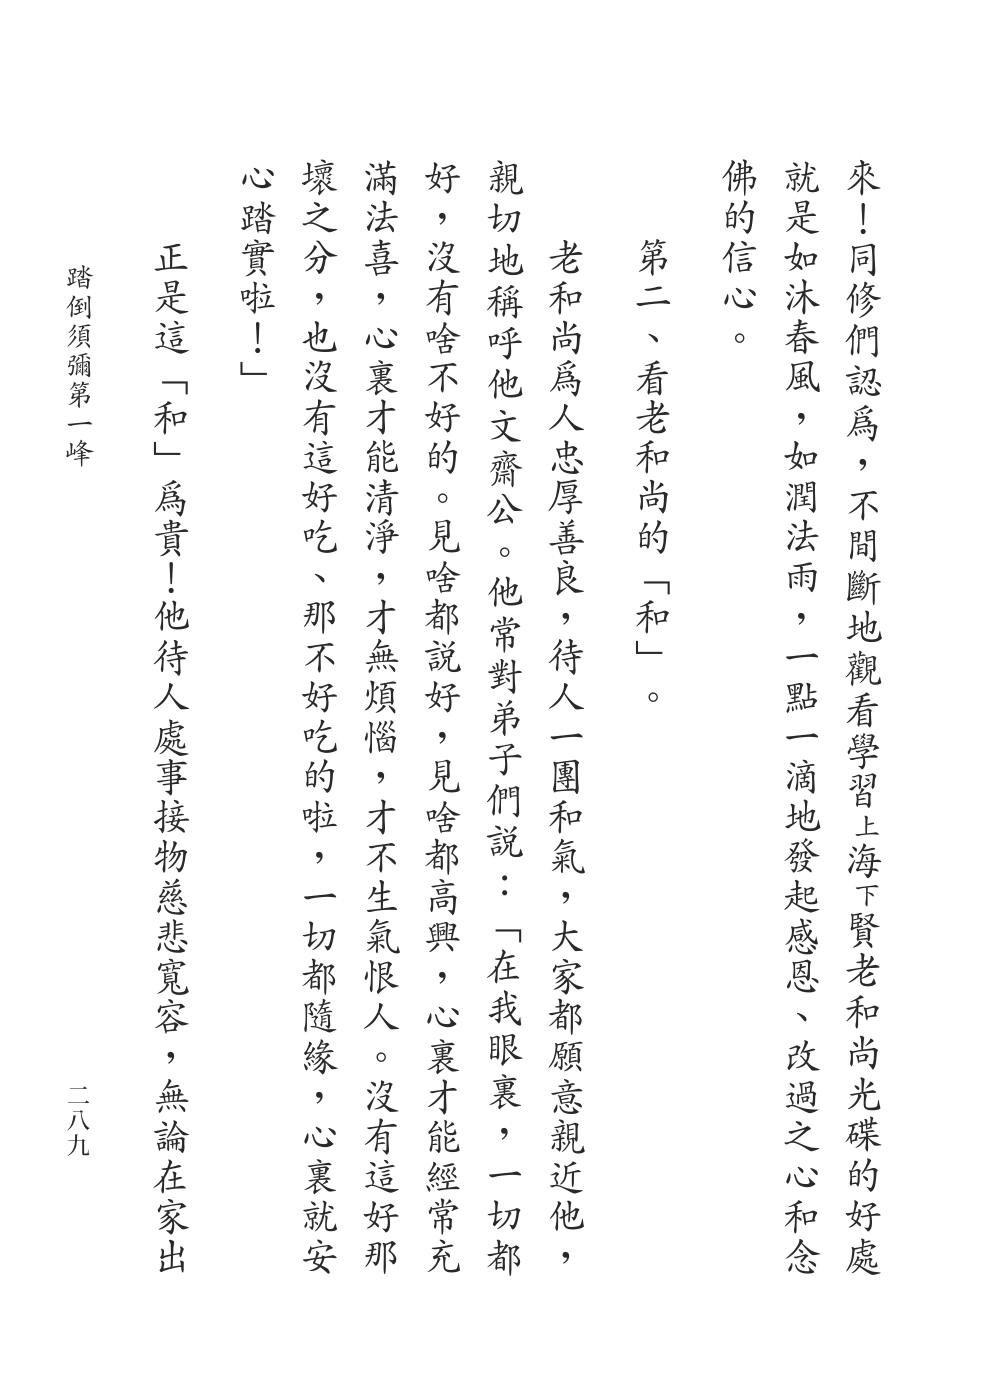 來！同修們認爲，不間斷地觀看學習上海下賢老和尚光碟的好處
就是如沐春風，如潤法雨，一點一滴地發起感恩、改過之心和念
佛的信心。
第二、看老和尚的「和」。
老和尚爲人忠厚善良，待人一團和氣，大家都願意親近他，
親切地稱呼他文齋公。他常對弟子們説：「在我眼裏，一切都
好，沒有啥不好的。見啥都説好，見啥都高興，心裏才能經常充
滿法喜，心裏才能清淨，才無煩惱，才不生氣恨人。沒有這好那
壞之分，也沒有這好吃、那不好吃的啦，一切都隨緣，心裏就安
心踏實啦！」
正是這「和」爲貴！他待人處事接物慈悲寬容，無論在家出
踏倒須彌第一峰
二八九